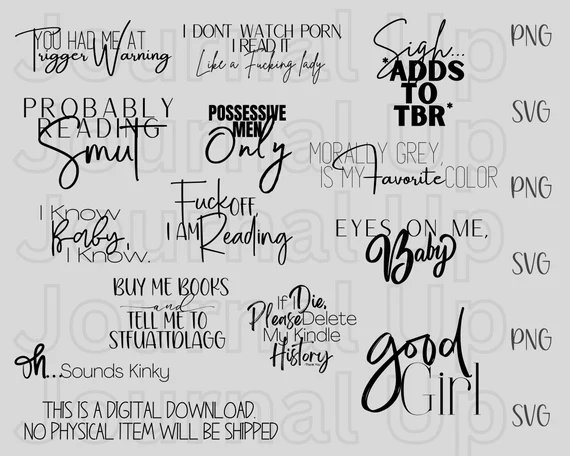 YOU HAD ME AT
Trigger Warning
I DONT WATCH PORN
I READ IT
Like a Fucking lady
Sigh...
*ADDS
TO
TBR*
PNG
SVG
PROBABLY
READING
Smut
POSSESSIVE
MEN
Only
MORALLY GREY,
IS MY Favorite COLOR
PNG
I Know
Baby,
I Know.
Fuck OFF
I AM Reading
EYES ON ME,
Baby
SVG
BUY ME BOOKS
and
TELL ME TO
STFUATTDLAGG
If I Die,
Please Delete
My Kindle
History
good
Girl
PNG
SVG
oh...Sounds Kinky
THIS IS A DIGITAL DOWNLOAD.
NO PHYSICAL ITEM WILL BE SHIPPED
Journal Up
Journal Up
Journal Up
Journal Up
Journal Up